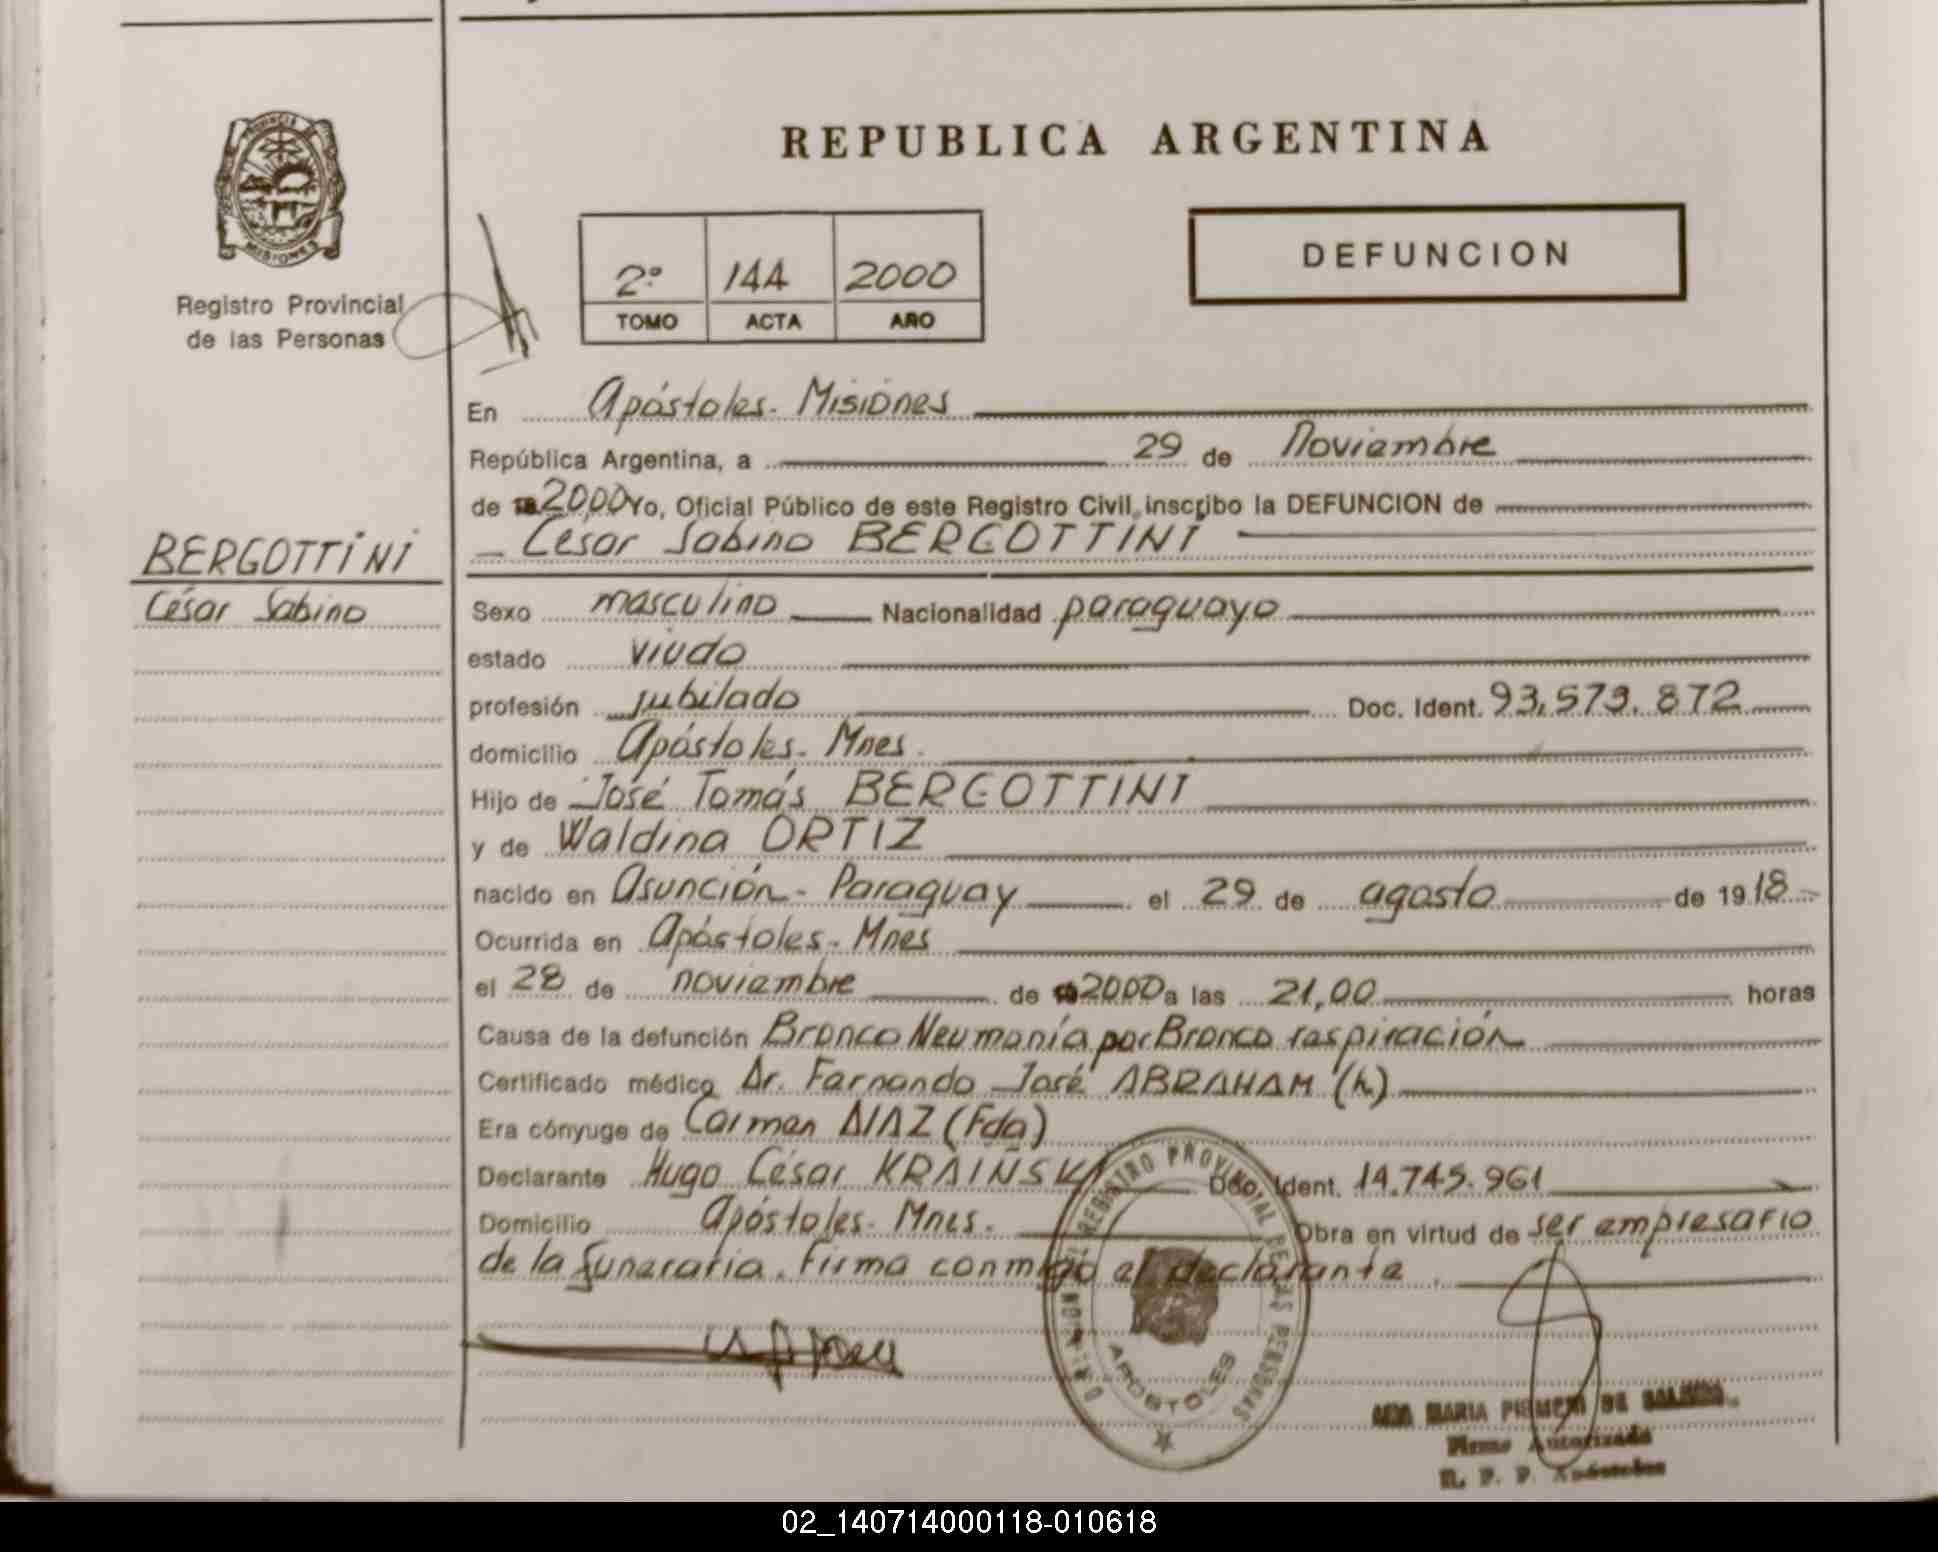 REPUBLICA ARGENTINA
PROVINCIA DE
MISIONES
Registro Provincial
de las Personas
2º 144 2000
TOMO ACTA AÑO
DEFUNCION
En Apóstoles. Misiones
República Argentina, a 29 de Noviembre
de 2000 Yo, Oficial Público de este Registro Civil, inscribo la DEFUNCION de
César Sabino BERGOTTINI
BERGOTTINI
César Sabino
Sexo masculino Nacionalidad paraguayo
estado viudo
profesión jubilado Doc. Ident. 93.573.872
domicilio Apóstoles. Mnes.
Hijo de José Tomás BERGOTTINI
y de Waldina ORTIZ
nacido en Asunción - Paraguay el 29 de agosto de 1918
Ocurrida en Apóstoles. Mnes
el 28 de noviembre de 2000 a las 21,00 horas
Causa de la defunción Bronco Neumonía por Bronco raspiración
Certificado médico Dr. Fernando José ABRAHAM (h)
Era cónyuge de Carmen DIAZ (Fda)
Declarante Hugo César KRAINSKI Doc. Ident. 14.745.961
Domicilio Apóstoles. Mnes. Obra en virtud de ser empresario
de la funeraria. Firma conmigo el declarante.
REGISTRO PROVINCIAL DE LAS PERSONAS
APOSTOLES
MARIA DE
Firma Autorizada
R. P. P. Apóstoles
02_140714000118-010618